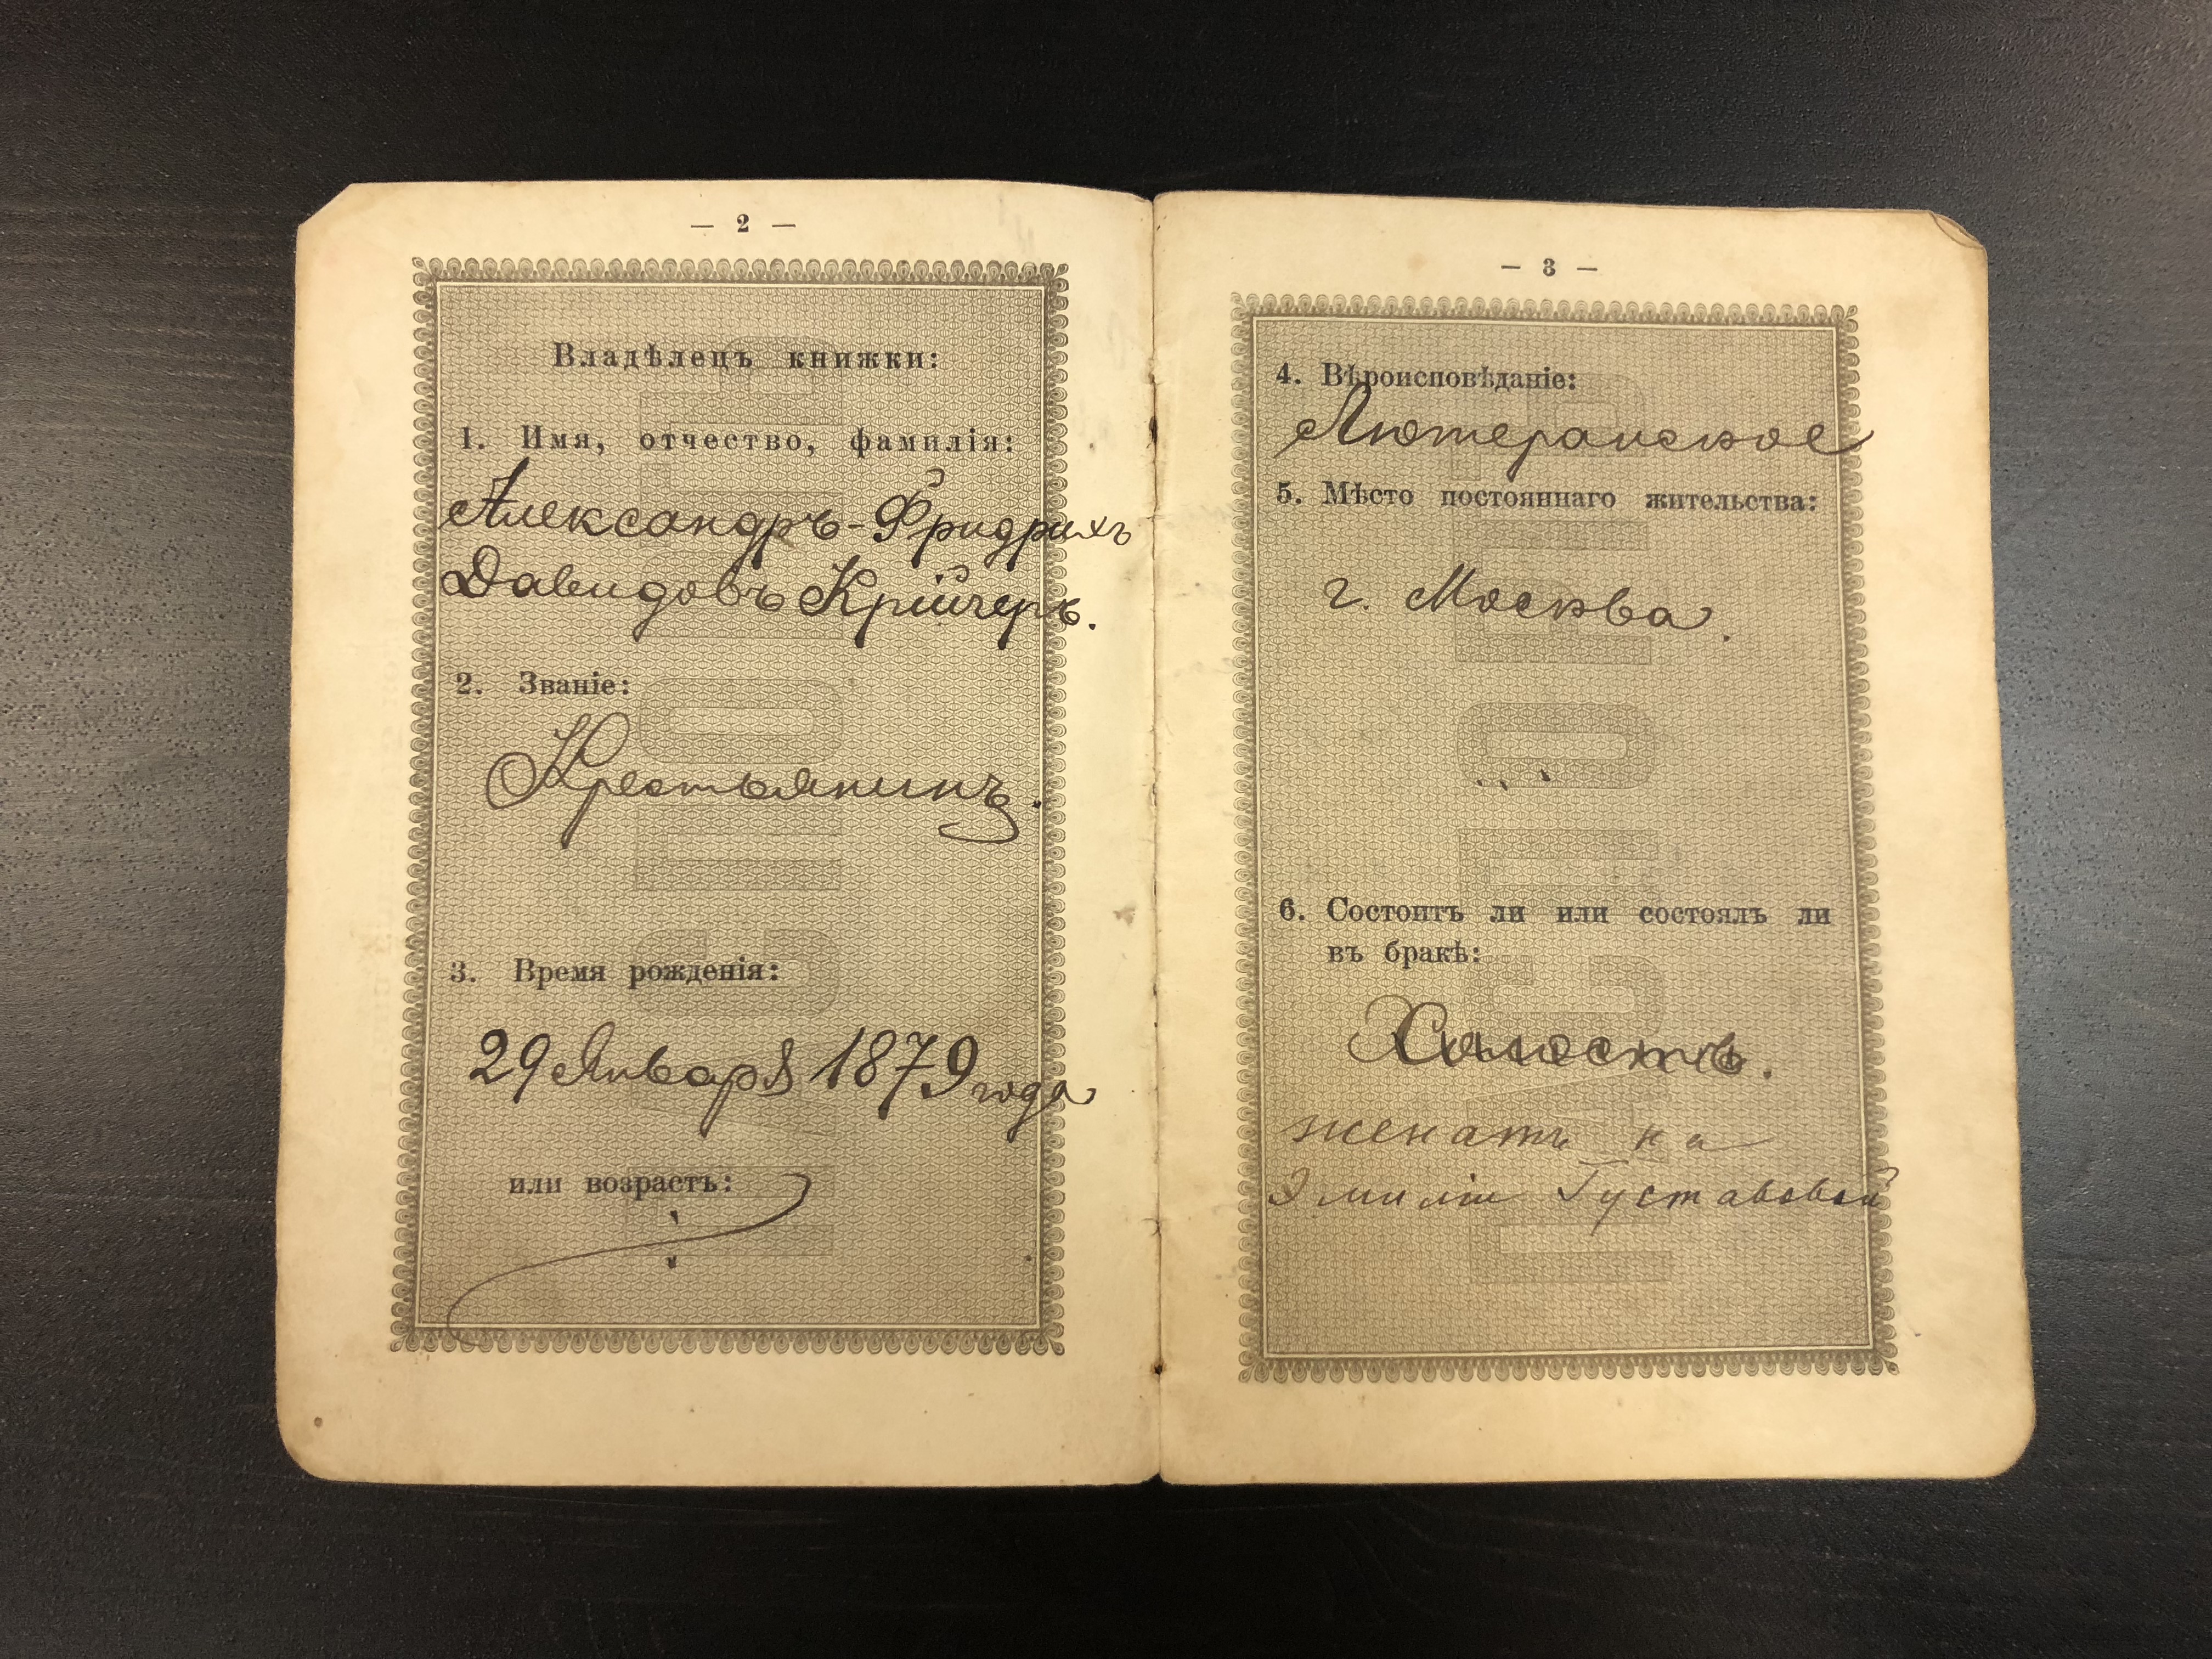 — 2 —
Владѣлецъ книжки:
1. Имя, отчество, фамилія:
Александръ-Фридрихъ
Давидовъ Крійгеръ.
2. Званіе:
Крестьянинъ.
3. Время рожденія:
29 Января 1879 года
или возрастъ:
— 3 —
4. Вѣроисповѣданіе:
Лютеранское
5. Мѣсто постояннаго жительства:
г. Москва.
6. Состоитъ ли или состоялъ ли
въ бракѣ:
Холостъ.
женатъ на
Эмиліи Густавовой